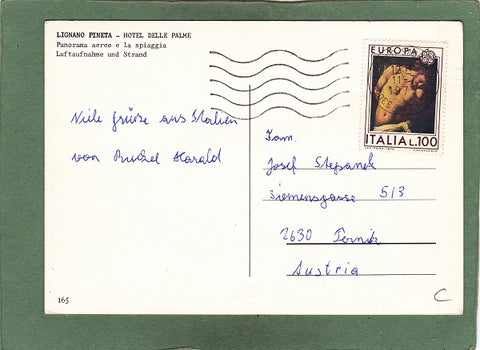 LIGNANO PINETA — HOTEL DELLE PALME
Panorama aereo e la spiaggia
Luftaufnahme und Strand
EUROPA
ITALIA L.100
Viele grüße aus Italien
von Harald
Fam.
Josef Stepanek
Siemensgasse 5/3
2630 Ternitz
Austria
165
C